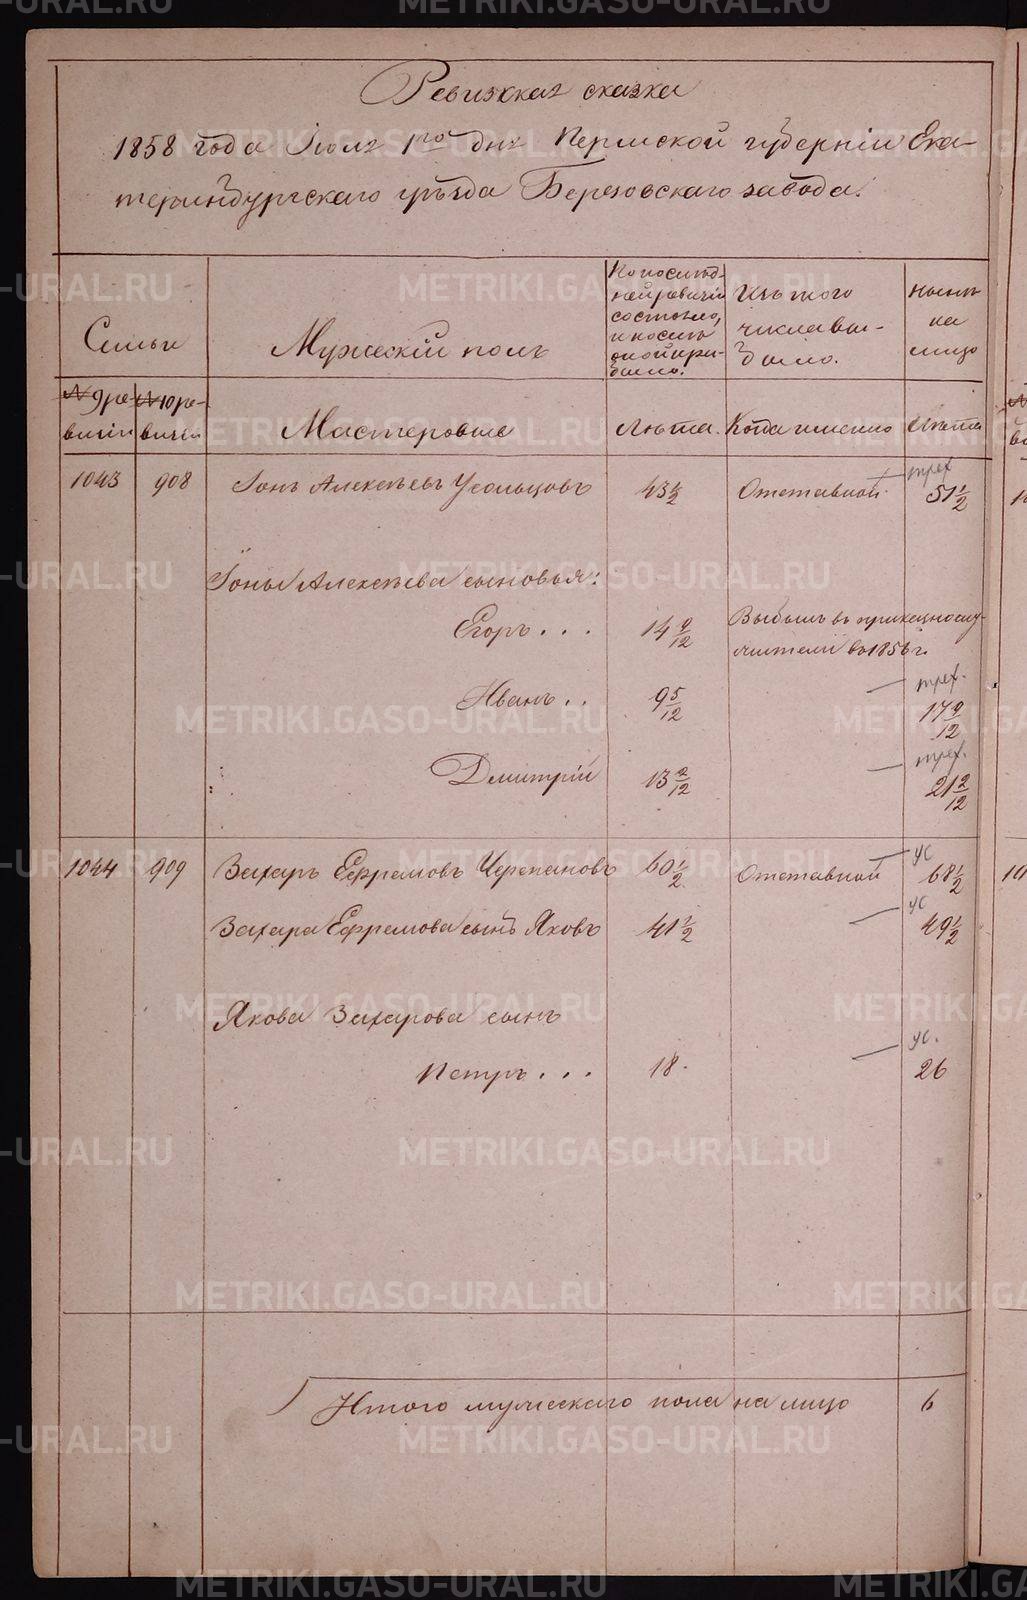 Ревизская сказка
1858 года Iюля 1го дня Пермской губернiи Ека-
теринбургскаго уѣзда Березовскаго завода.
Семьи
Мужескiй полъ
По послѣд-
ней ревизiи
состояло,
и послѣ
оной при-
было.
Изъ того
числа вы-
было.
Нынѣ
на
лицо
№ 9 ре-
визiи
№ 10 ре-
визiи
Мастеровые
Лѣта.
Когда именно
Лѣта
1043 908 Iонъ Алексѣевъ Усольцовъ 43 1/2 Отставной 51 1/2
Iоны Алексѣева сыновья:
Егоръ . . . 14 9/12 Выбылъ въ
въ 1856 г.
Иванъ . . 9 5/12 17 9/12
Дмитрiй 13 2/12 21 2/12
1044 909 Захаръ Ефремовъ Черепановъ 60 1/2 Отставной 68 1/2
Захара Ефремова сынъ Яковъ 41 1/2 49 1/2
Якова Захарова сынъ
Петръ . . . 18. 26
Итого мужескаго пола на лицо 6
METRIKI.GASO-URAL.RU